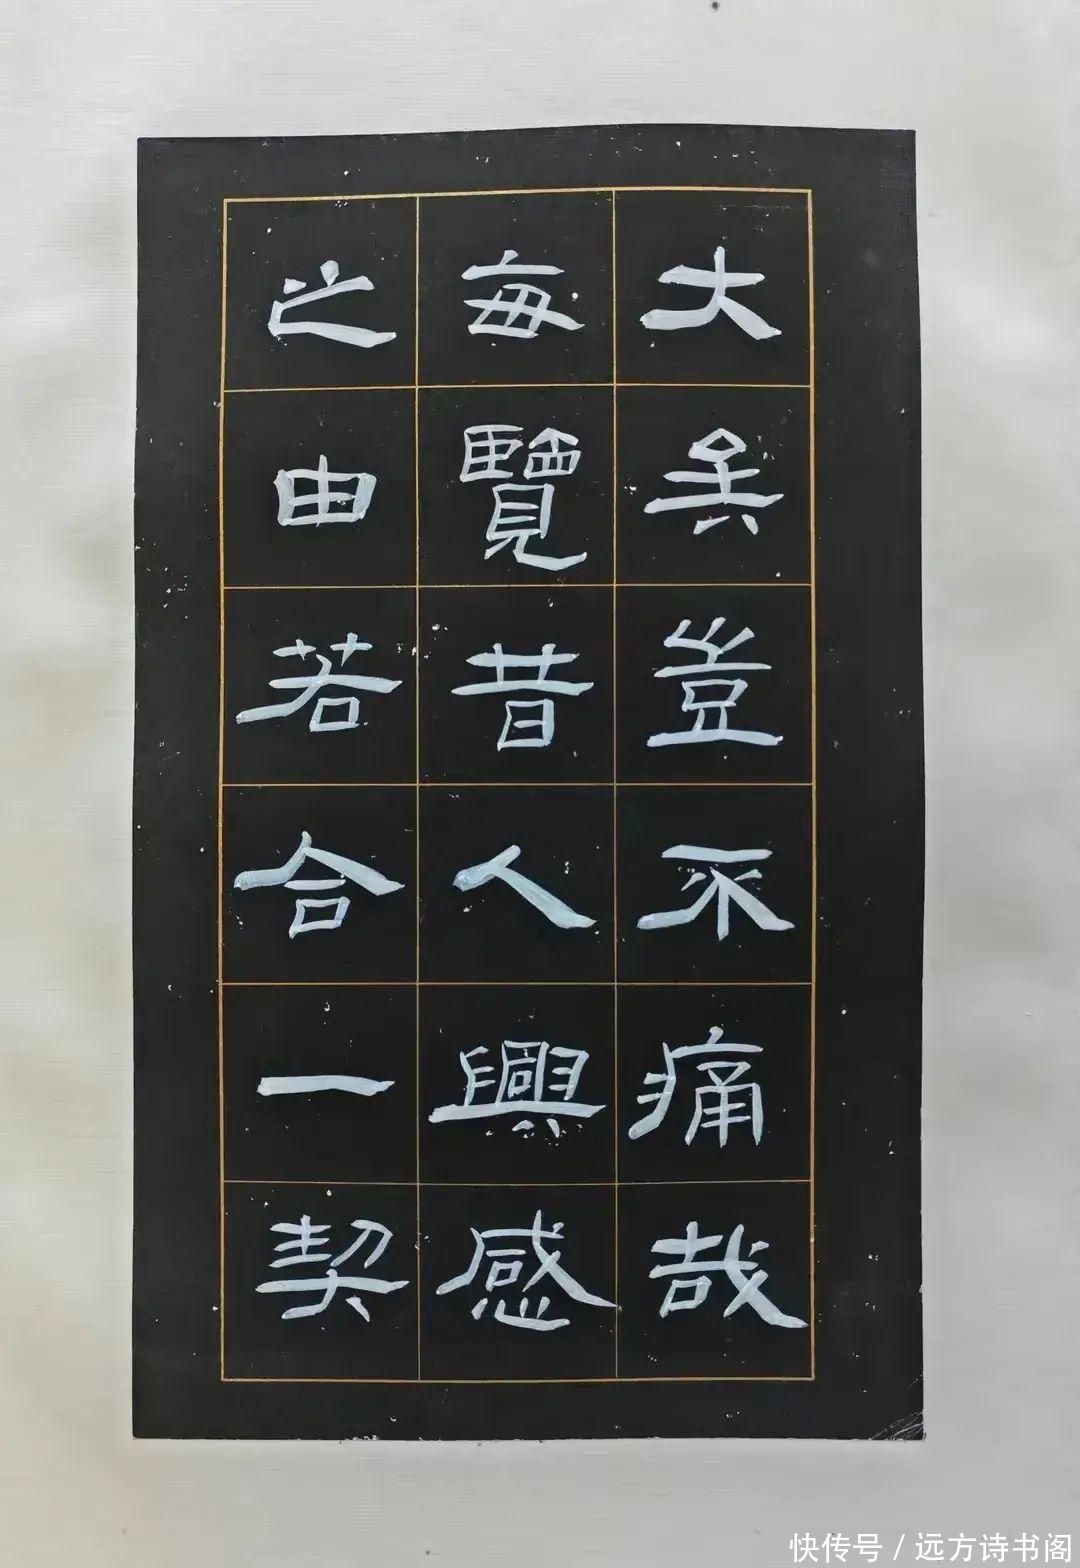 大矣豈不痛哉
每覽昔人興感
之由若合一契
快传号 / 远方诗书阁